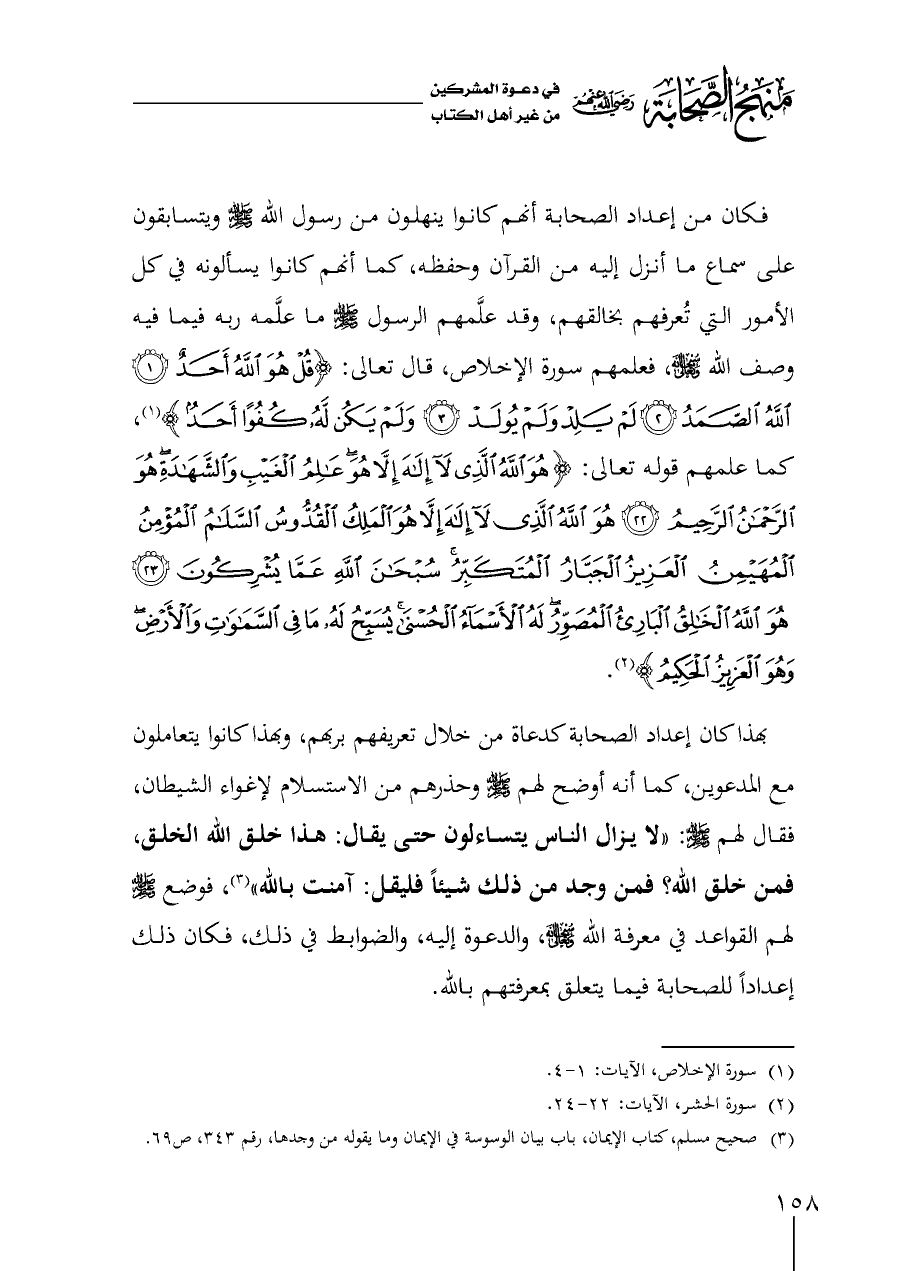 منهج الصحابة رضي الله عنهم
في دعوة المشركين
من غير أهل الكتاب
فكان من إعداد الصحابة أنهم كانوا ينهلون من رسول الله ﷺ ويتسابقون
على سماع ما أنزل إليه من القرآن وحفظه، كما أنهم كانوا يسألونه في كل
الأمور التي تُعرفهم بخالقهم، وقد علَّمهم الرسول ﷺ ما علَّمه ربه فيما فيه
وصف الله ﷻ، فعلمهم سورة الإخلاص، قال تعالى: ﴿قُلْ هُوَ ٱللَّهُ أَحَدٌ ۝١
ٱللَّهُ ٱلصَّمَدُ ۝٢ لَمْ يَلِدْ وَلَمْ يُولَدْ ۝٣ وَلَمْ يَكُن لَّهُۥ كُفُوًا أَحَدٌۢ﴾(١)،
كما علمهم قوله تعالى: ﴿هُوَ ٱللَّهُ ٱلَّذِى لَآ إِلَٰهَ إِلَّا هُوَۖ عَٰلِمُ ٱلْغَيْبِ وَٱلشَّهَٰدَةِۖ هُوَ
ٱلرَّحْمَٰنُ ٱلرَّحِيمُ ۝٢٢ هُوَ ٱللَّهُ ٱلَّذِى لَآ إِلَٰهَ إِلَّا هُوَ ٱلْمَلِكُ ٱلْقُدُّوسُ ٱلسَّلَٰمُ ٱلْمُؤْمِنُ
ٱلْمُهَيْمِنُ ٱلْعَزِيزُ ٱلْجَبَّارُ ٱلْمُتَكَبِّرُۚ سُبْحَٰنَ ٱللَّهِ عَمَّا يُشْرِكُونَ ۝٢٣
هُوَ ٱللَّهُ ٱلْخَٰلِقُ ٱلْبَارِئُ ٱلْمُصَوِّرُۖ لَهُ ٱلْأَسْمَآءُ ٱلْحُسْنَىٰۚ يُسَبِّحُ لَهُۥ مَا فِى ٱلسَّمَٰوَٰتِ وَٱلْأَرْضِۖ
وَهُوَ ٱلْعَزِيزُ ٱلْحَكِيمُ﴾(٢).
بهذا كان إعداد الصحابة كدعاة من خلال تعريفهم بربهم، وبهذا كانوا يتعاملون
مع المدعوين، كما أنه أوضح لهم ﷺ وحذرهم من الاستسلام لإغواء الشيطان،
فقال لهم ﷺ: «لا يزال الناس يتساءلون حتى يقال: هذا خلق الله الخلق،
فمن خلق الله؟ فمن وجد من ذلك شيئاً فليقل: آمنت بالله»(٣)، فوضع ﷺ
لهم القواعد في معرفة الله ﷻ، والدعوة إليه، والضوابط في ذلك، فكان ذلك
إعداداً للصحابة فيما يتعلق بمعرفتهم بالله.
(١) سورة الإخلاص، الآيات: ١-٤.
(٢) سورة الحشر، الآيات: ٢٢-٢٤.
(٣) صحيح مسلم، كتاب الإيمان، باب بيان الوسوسة في الإيمان وما يقوله من وجدها، رقم ٣٤٣، ص٦٩.
١٥٨